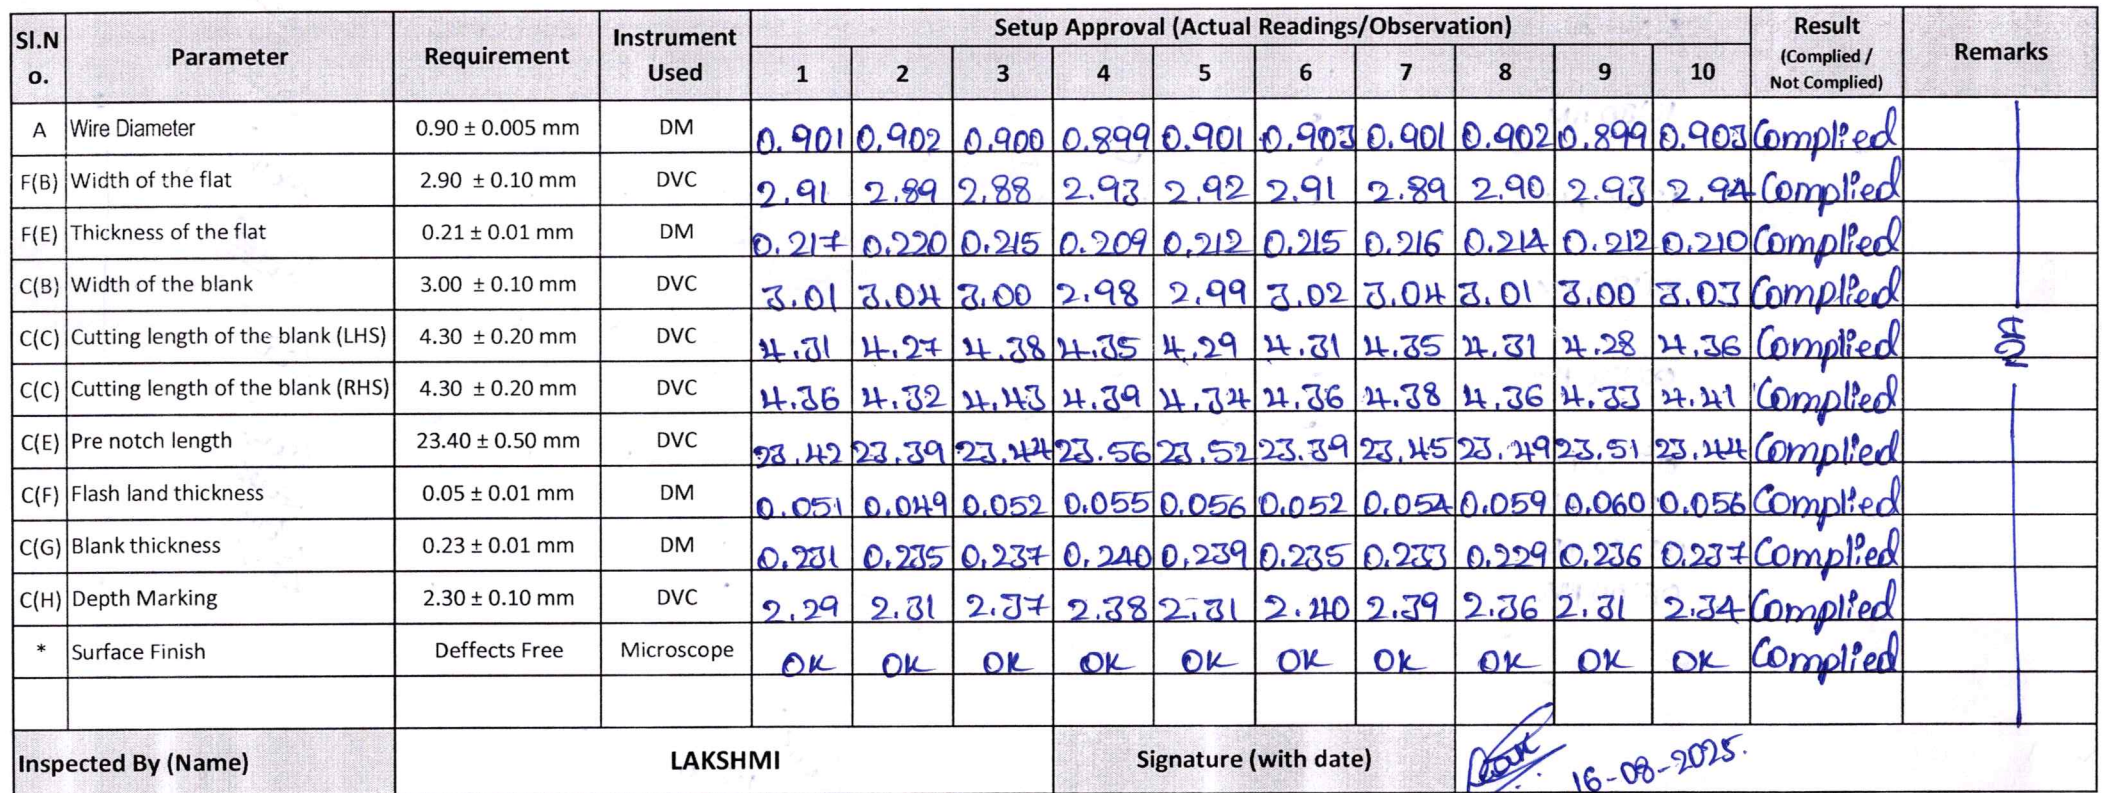 Sl.No. Parameter Requirement Instrument Used Setup Approval (Actual Readings/Observation) Result (Complied / Not Complied) Remarks
1 2 3 4 5 6 7 8 9 10
A Wire Diameter 0.90 ± 0.005 mm DM 0.901 0.902 0.900 0.899 0.901 0.903 0.901 0.902 0.899 0.903 Complied
F(B) Width of the flat 2.90 ± 0.10 mm DVC 2.91 2.89 2.88 2.93 2.92 2.91 2.89 2.90 2.93 2.94 Complied
F(E) Thickness of the flat 0.21 ± 0.01 mm DM 0.217 0.220 0.215 0.209 0.212 0.215 0.216 0.214 0.212 0.210 Complied
C(B) Width of the blank 3.00 ± 0.10 mm DVC 3.01 3.04 3.00 2.98 2.99 3.02 3.04 3.01 3.00 3.03 Complied
C(C) Cutting length of the blank (LHS) 4.30 ± 0.20 mm DVC 4.31 4.27 4.38 4.35 4.29 4.31 4.35 4.31 4.28 4.36 Complied
C(C) Cutting length of the blank (RHS) 4.30 ± 0.20 mm DVC 4.36 4.32 4.43 4.39 4.34 4.36 4.38 4.36 4.33 4.41 Complied
C(E) Pre notch length 23.40 ± 0.50 mm DVC 23.42 23.39 23.44 23.56 23.52 23.39 23.45 23.49 23.51 23.44 Complied
C(F) Flash land thickness 0.05 ± 0.01 mm DM 0.051 0.049 0.052 0.055 0.056 0.052 0.054 0.059 0.060 0.056 Complied
C(G) Blank thickness 0.23 ± 0.01 mm DM 0.231 0.235 0.237 0.240 0.239 0.235 0.233 0.229 0.236 0.237 Complied
C(H) Depth Marking 2.30 ± 0.10 mm DVC 2.29 2.31 2.37 2.38 2.31 2.40 2.39 2.36 2.31 2.34 Complied
* Surface Finish Deffects Free Microscope OK OK OK OK OK OK OK OK OK OK Complied
Inspected By (Name) LAKSHMI Signature (with date) 16-08-2025.